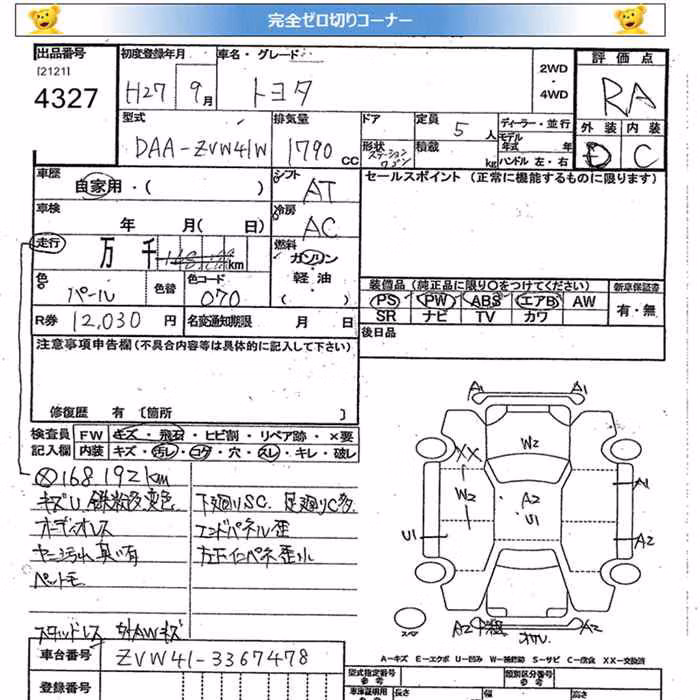 完全ゼロ切りコーナー
出品番号
[2121]
4327
初度登録年月
H27 9月
車名・グレード
トヨタ
2WD
・
4WD
評価点
RA
外装 内装
D C
型式
DAA-ZVW41W
排気量
1790 CC
ドア
形状
ステーション
ワゴン
定員
5 人
積載
kg
ディーラー・並行
モデル
年式 年
ハンドル 左・右
車歴
自家用・( )
シフト
AT
セールスポイント (正常に機能するものに限ります)
車検
年 月( 日)
冷房
AC
走行
万 千 km
燃料
ガソリン
・
軽油
( )
色
パール
色替
色コード
070
装備品 (純正品に限り○をつけてください)
PS PW ABS エアB AW
SR ナビ TV カワ
新車保証書
有・無
R券 12,030 円
名変通知期限 月 日
後日品
注意事項申告欄 (不具合内容等は具体的に記入して下さい)
修復歴 有 [箇所 ]
検査員
記入欄
FW キズ・飛石・ヒビ割・リペア跡・×要
内装 キズ・汚レ・コゲ・穴・スレ・キレ・破レ
168,192km
キズU、鉄粉多変色
オーディオレス
ヤニ汚れ臭い有
ペットモ
下廻りSC、足廻りC多
エンドパネル歪
スタッドレス 社外AWキズ
A1 A1
W2
XX
W2
A2
U1
A1
U1
A2
A2
A2
スペア
A-キズ E-エクボ U-凹み W-補修跡 S-サビ C-腐食 XX-交換済
車台番号
ZVW41-3367478
登録番号
型式指定番号
参考
類別区分番号
参考
車庫証明用
長さ 幅 高さ